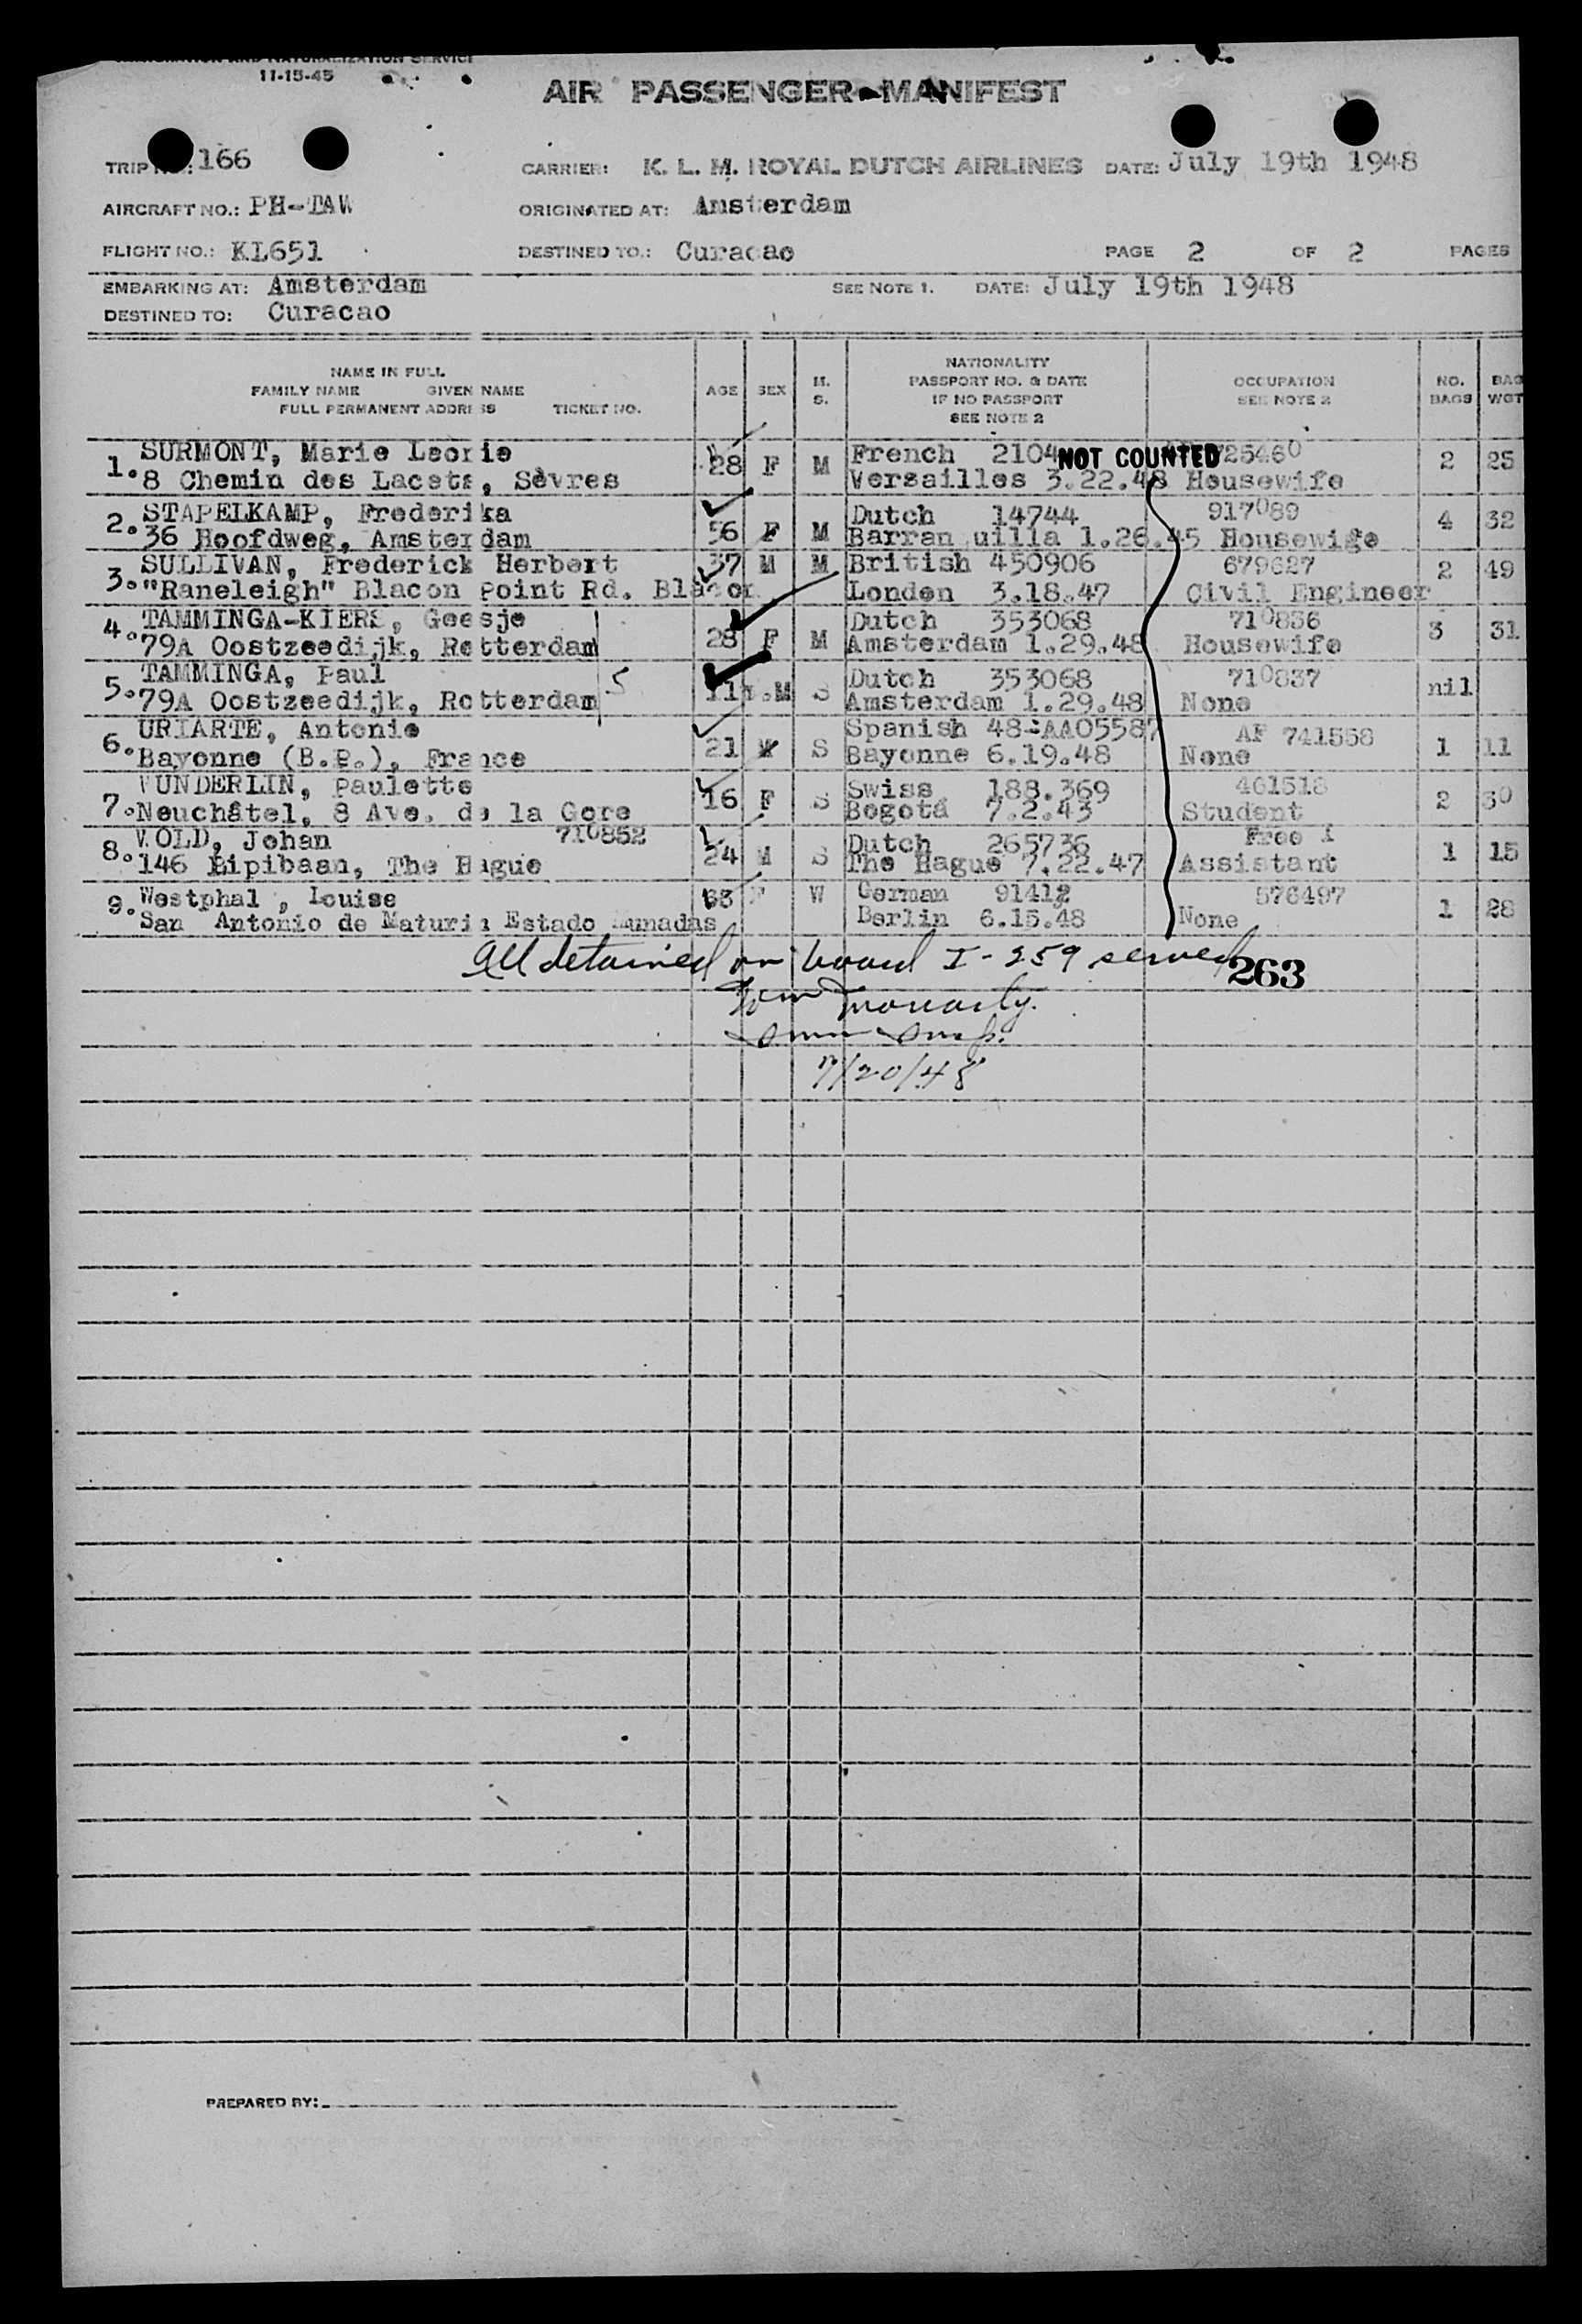 IMMIGRATION AND NATURALIZATION SERVICE
11-15-45
AIR PASSENGER MANIFEST
TRIP NO.: 166 CARRIER: K. L. M. ROYAL DUTCH AIRLINES DATE: July 19th 1948
AIRCRAFT NO.: PH-TAW ORIGINATED AT: Amsterdam
FLIGHT NO.: KL651 DESTINED TO: Curacao PAGE 2 OF 2 PAGES
EMBARKING AT: Amsterdam SEE NOTE 1. DATE: July 19th 1948
DESTINED TO: Curacao
NAME IN FULL
FAMILY NAME GIVEN NAME
FULL PERMANENT ADDRESS TICKET NO.
AGE SEX M. S.
NATIONALITY
PASSPORT NO. & DATE
IF NO PASSPORT
SEE NOTE 2
OCCUPATION
SEE NOTE 2
NO. BAGS
BAG WGT
1. SURMONT, Marie Leonie 28 F M French 2104 NOT COUNTED 725460 2 25
8 Chemin des Lacets, Sèvres Versailles 3.22.48 Housewife
2. STAPELKAMP, Frederika 56 F M Dutch 14744 917089 4 32
36 Hoofdweg, Amsterdam Barran uilla 1.26.45 Housewige
3. SULLIVAN, Frederick Herbert 37 M M British 450906 679627 2 49
"Raneleigh" Blacon Point Rd. Blacon London 3.18.47 Civil Engineer
4. TAMMINGA-KIERS, Geesje 28 F M Dutch 353068 710836 3 31
79A Oostzeedijk, Rotterdam Amsterdam 1.29.48 Housewife
5. TAMMINGA, Paul 5 11m. M S Dutch 353068 710837 nil
79A Oostzeedijk, Rotterdam Amsterdam 1.29.48 None
6. URIARTE, Antonio 21 M S Spanish 48-AA05587 AF 741558 1 11
Bayonne (B.P.), France Bayonne 6.19.48 None
7. WUNDERLIN, Paulette 16 F S Swiss 188.369 461518 2 30
Neuchâtel, 8 Ave. de la Gare Bogotá 7.2.43 Student
8. WOLD, Johan 710852 24 M S Dutch 265736 Free 1 1 15
146 Eipibaan, The Hague The Hague 7.22.47 Assistant
9. Westphal, Louise 63 F W German 91412 576497 1 28
San Antonio de Maturin Estado Munadas Berlin 6.15.48 None
All detained on board I-259 served 263
Wm Moriarty.
Imm Insp.
7/20/48
PREPARED BY: